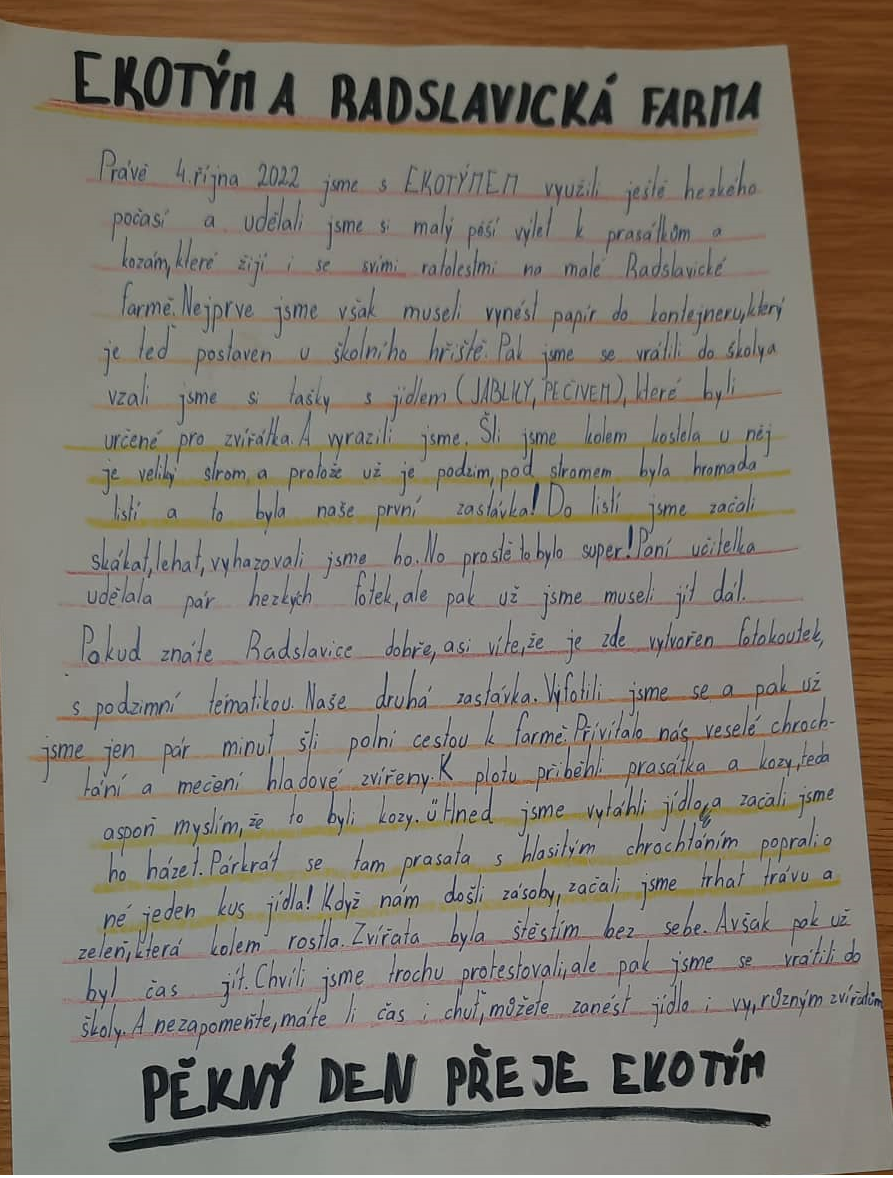 EKOTÝM A RADSLAVICKÁ FARMA
Právě 4. října 2022 jsme s EKOTÝMEM využili ještě hezkého
počasí a udělali jsme si malý pěší výlet k prasátkům a
kozám, které žijí i se svími ratolestmi na malé Radslavické
farmě. Nejprve jsme však museli vynést papír do kontejneru, který
je teď postaven u školního hřiště. Pak jsme se vrátili do školy a
vzali jsme si tašky s jídlem (JABLKY, PEČIVEM), které byli
určené pro zvířátka. A vyrazili jsme. Šli jsme kolem kostela u něj
je veliký strom, a protože už je podzim, pod stromem byla hromada
listí a to byla naše první zastávka! Do listí jsme začali
skákat, lehat, vyhazovali jsme ho. No prostě to bylo super! Paní učitelka
udělala pár hezkých fotek, ale pak už jsme museli jít dál.
Pokud znáte Radslavice dobře, asi víte, že je zde vytvořen fotokoutek,
s podzimní tématikou. Naše druhá zastávka. Vyfotili jsme se a pak už
jsme jen pár minut šli polní cestou k farmě. Přivítalo nás veselé chroch-
tání a mečení hladové zvířeny. K plotu přiběhli prasátka a kozy, teda
aspoň myslím, že to byli kozy. ü Hned jsme vytáhli jídlo, a začali jsme
ho házet. Párkrát se tam prasata s hlasitým chrochtáním popralio
ně jeden kus jídla! Když nám došli zásoby, začali jsme trhat trávu a
zeleň, která kolem rostla. Zvířata byla štěstím bez sebe. Avšak pak už
byl čas jít. Chvíli jsme trochu protestovali, ale pak jsme se vrátili do
školy. A nezapomeňte, máte li čas i chuť, můžete zanést jídlo i vy, různým zvířatům
PĚKNÝ DEN PŘEJE EKOTÝM